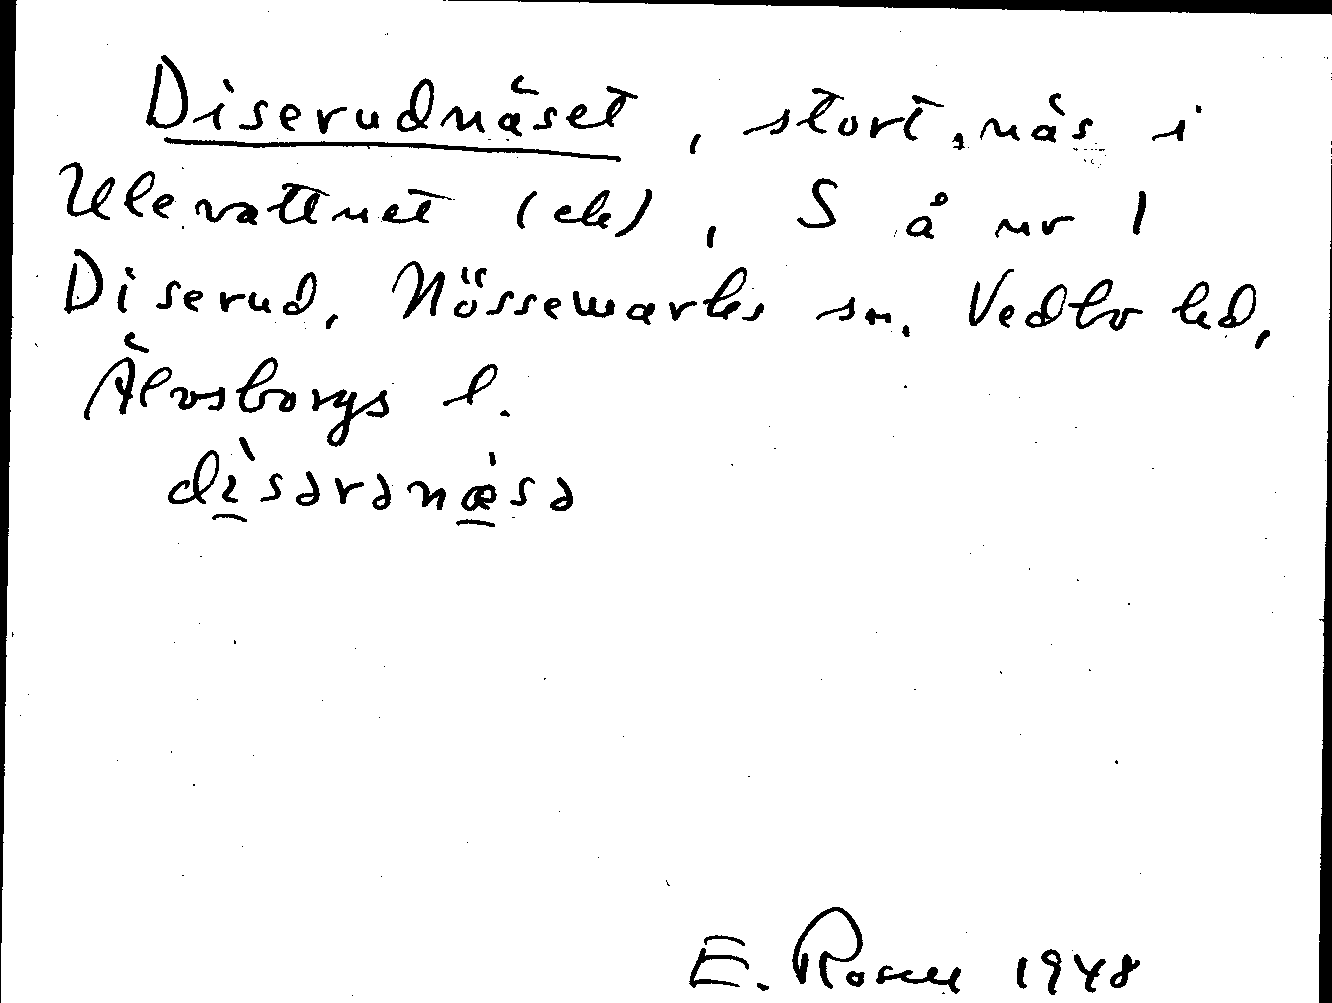 Diserudnäset, stort, näs i
Ulevattnet (ek), S å nr 1
Diserud, Nössemarks sn. Vedbo hd,
Älvsborgs l.
dìsərənæ̀sə
E. Rosell 1948